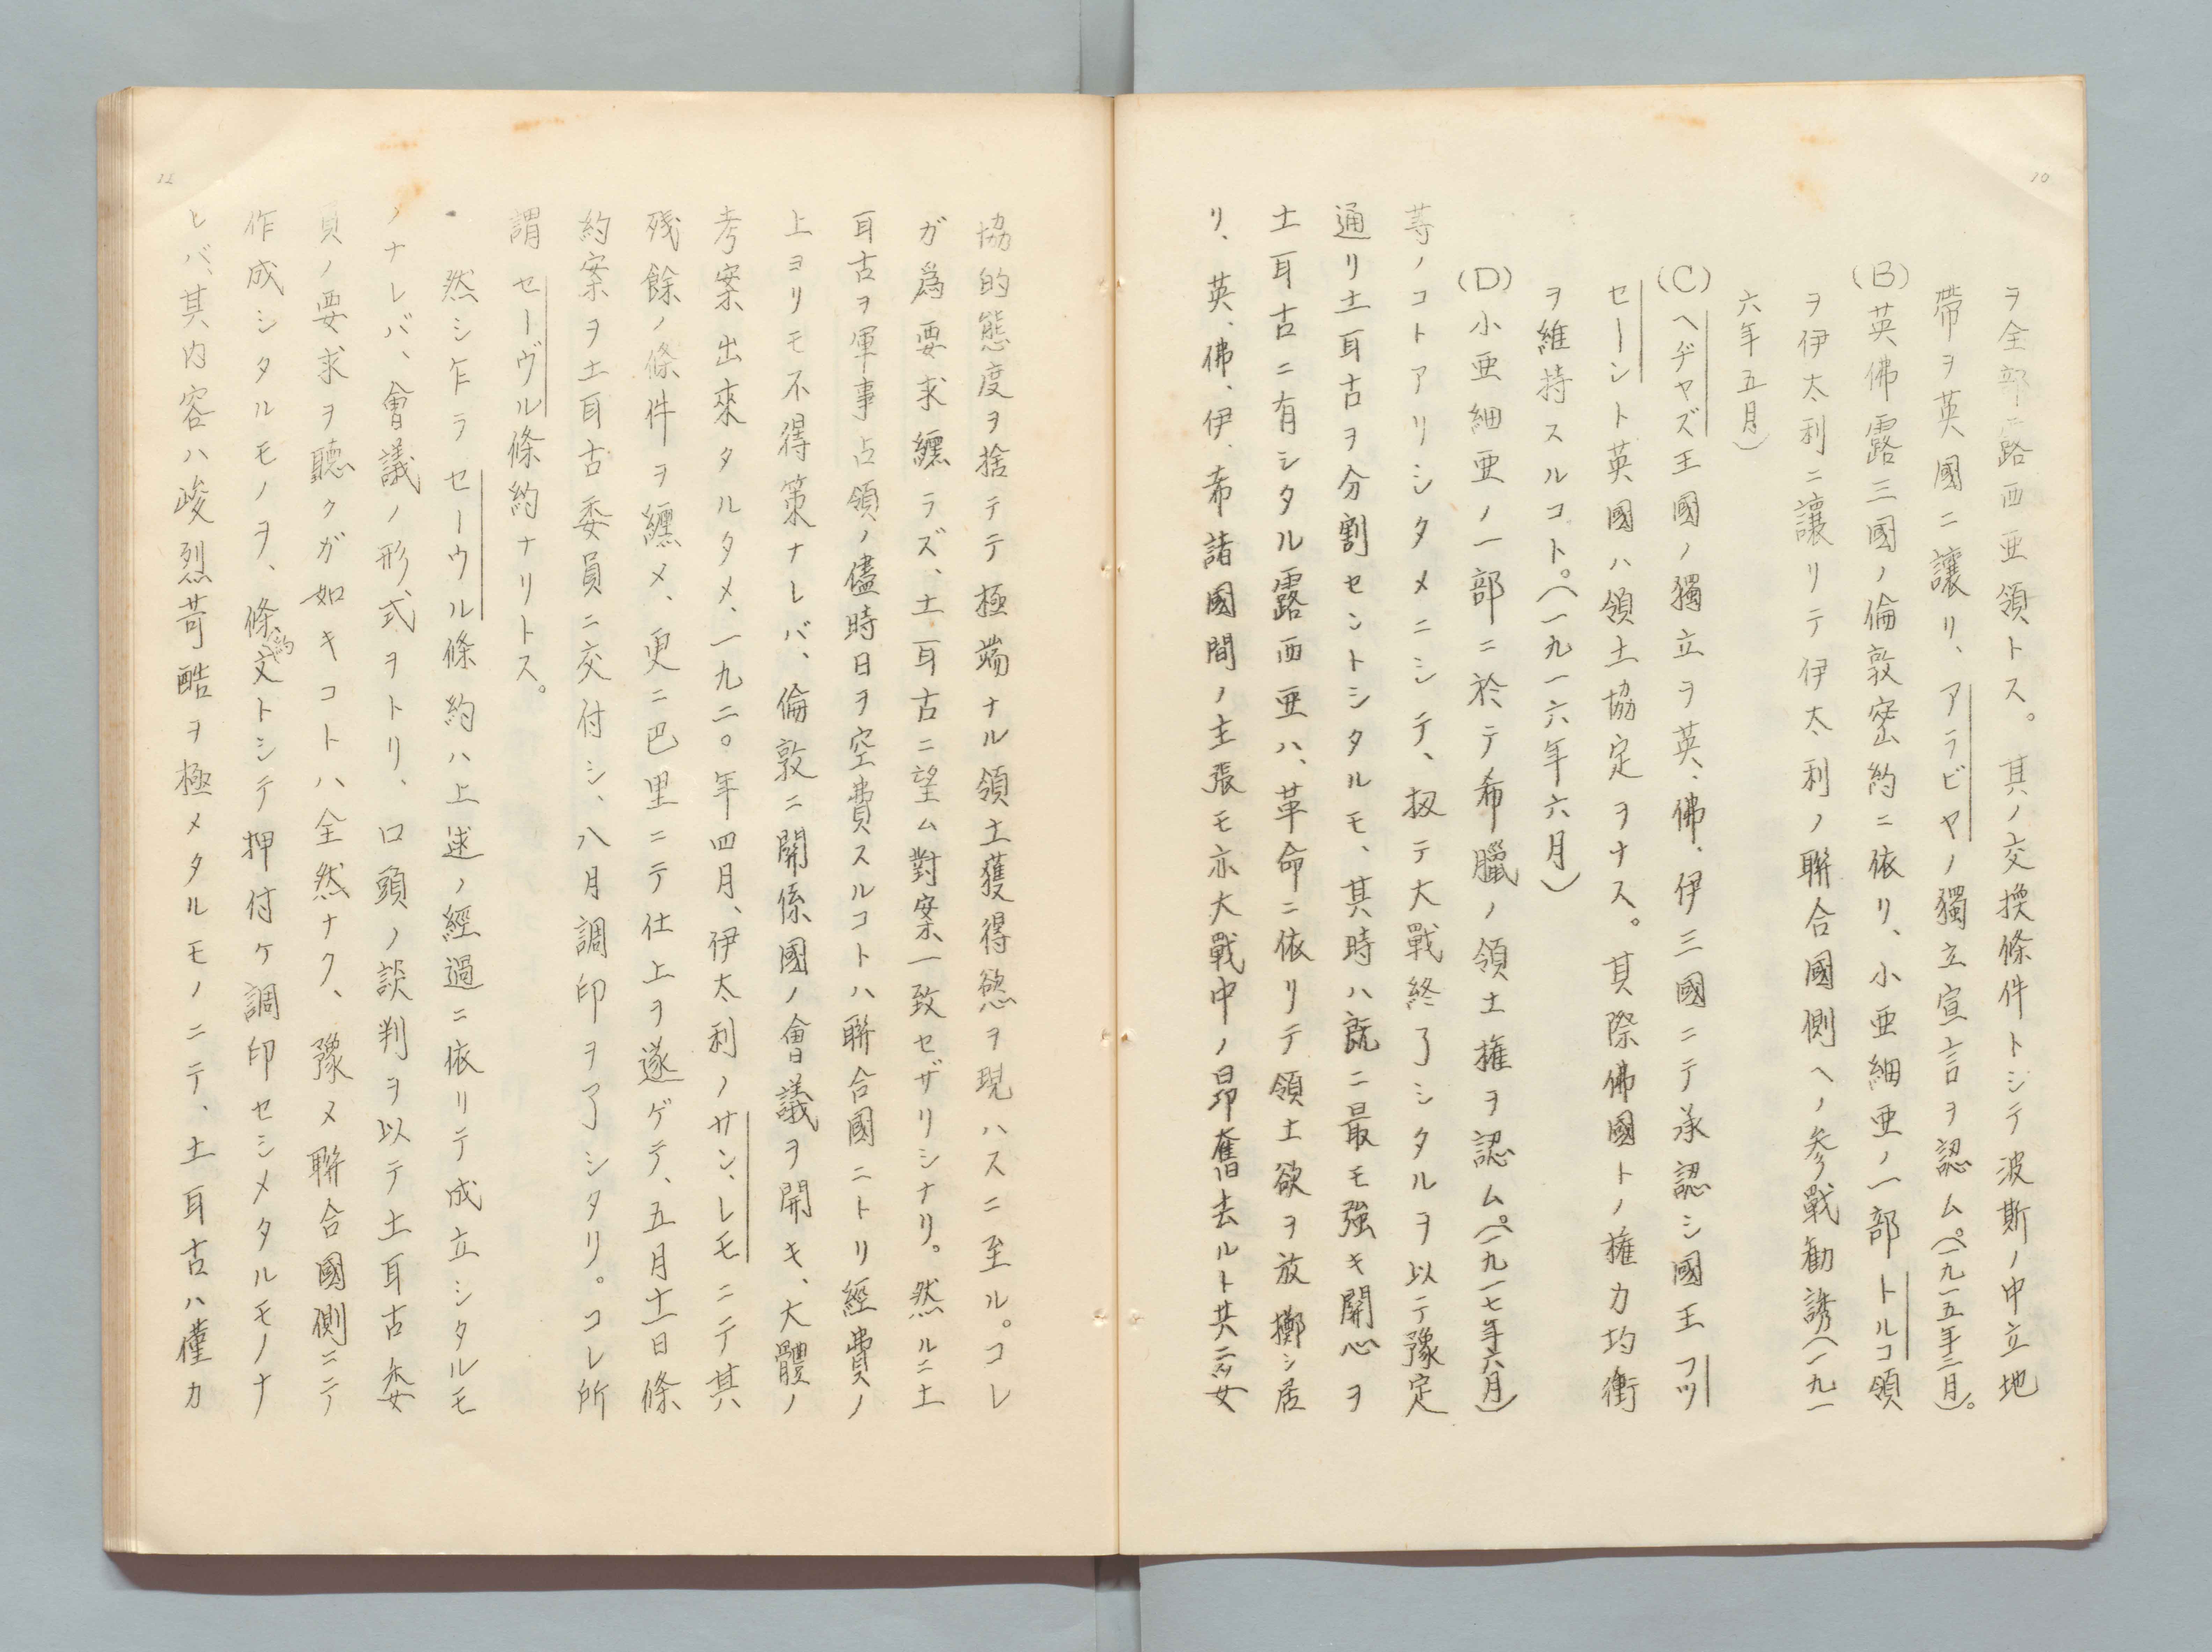 10
ヲ全部ニ露西亜領トス。其ノ交換條件トシテ波斯ノ中立地
帶ヲ英國ニ讓リ、アラビヤノ獨立宣言ヲ認ム。(一九一五年三月)。
(B)英佛露三國ノ倫敦密約ニ依リ、小亜細亜ノ一部トルコ領
ヲ伊太利ニ讓リテ伊太利ノ聯合國側ヘノ参戰勧誘(一九一
六年五月)
(C)ヘヂヤズ王國ノ獨立ヲ英、佛、伊三國ニテ承認シ國王フツ
セーント英國ハ領土協定ヲナス。其際佛國トノ権力均衝
ヲ維持スルコト。(一九一六年六月)
(D)小亜細亜ノ一部ニ於テ希臘ノ領土権ヲ認ム。(一九一七年六月)
等ノコトアリシタメニシテ、扨テ大戰終了シタルヲ以テ豫定
通リ土耳古ヲ分割セントシタルモ、其時ハ既ニ最モ強キ関心ヲ
土耳古ニ有シタル露西亜ハ、革命ニ依リテ領土欲ヲ放擲シ居
リ、英、佛、伊、希諸國間ノ主張モ亦大戰中ノ昴奮去ルト共ニ妥
協的態度ヲ捨テテ極端ナル領土獲得慾ヲ現ハスニ至ル。コレ
ガ爲要求纏ラズ、土耳古ニ望ム對案一致セザリシナリ。然ルニ土
耳古ヲ軍事占領ノ儘時日ヲ空費スルコトハ聯合國ニトリ經費ノ
上ヨリモ不得策ナレバ、倫敦ニ関係國ノ會議ヲ開キ、大體ノ
考案出來タルタメ、一九二〇年四月、伊太利ノサン、レモニテ其
残餘ノ條件ヲ纏メ、更ニ巴里ニテ仕上ヲ遂ゲテ、五月十一日條
約案ヲ土耳古委員ニ交付シ、八月調印ヲ了シタリ。コレ所
謂セーヴル條約ナリトス。
然シ乍ラセーウル條約ハ上述ノ經過ニ依リテ成立シタルモ
ノナレバ、會議ノ形式ヲトリ、口頭ノ談判ヲ以テ土耳古委
員ノ要求ヲ聽クガ如キコトハ全然ナク、豫メ聯合國側ニテ
作成シタルモノヲ、條約文トシテ押付ケ調印セシメタルモノナ
レバ、其内容ハ峻烈苛酷ヲ極メタルモノニテ、土耳古ハ僅カ